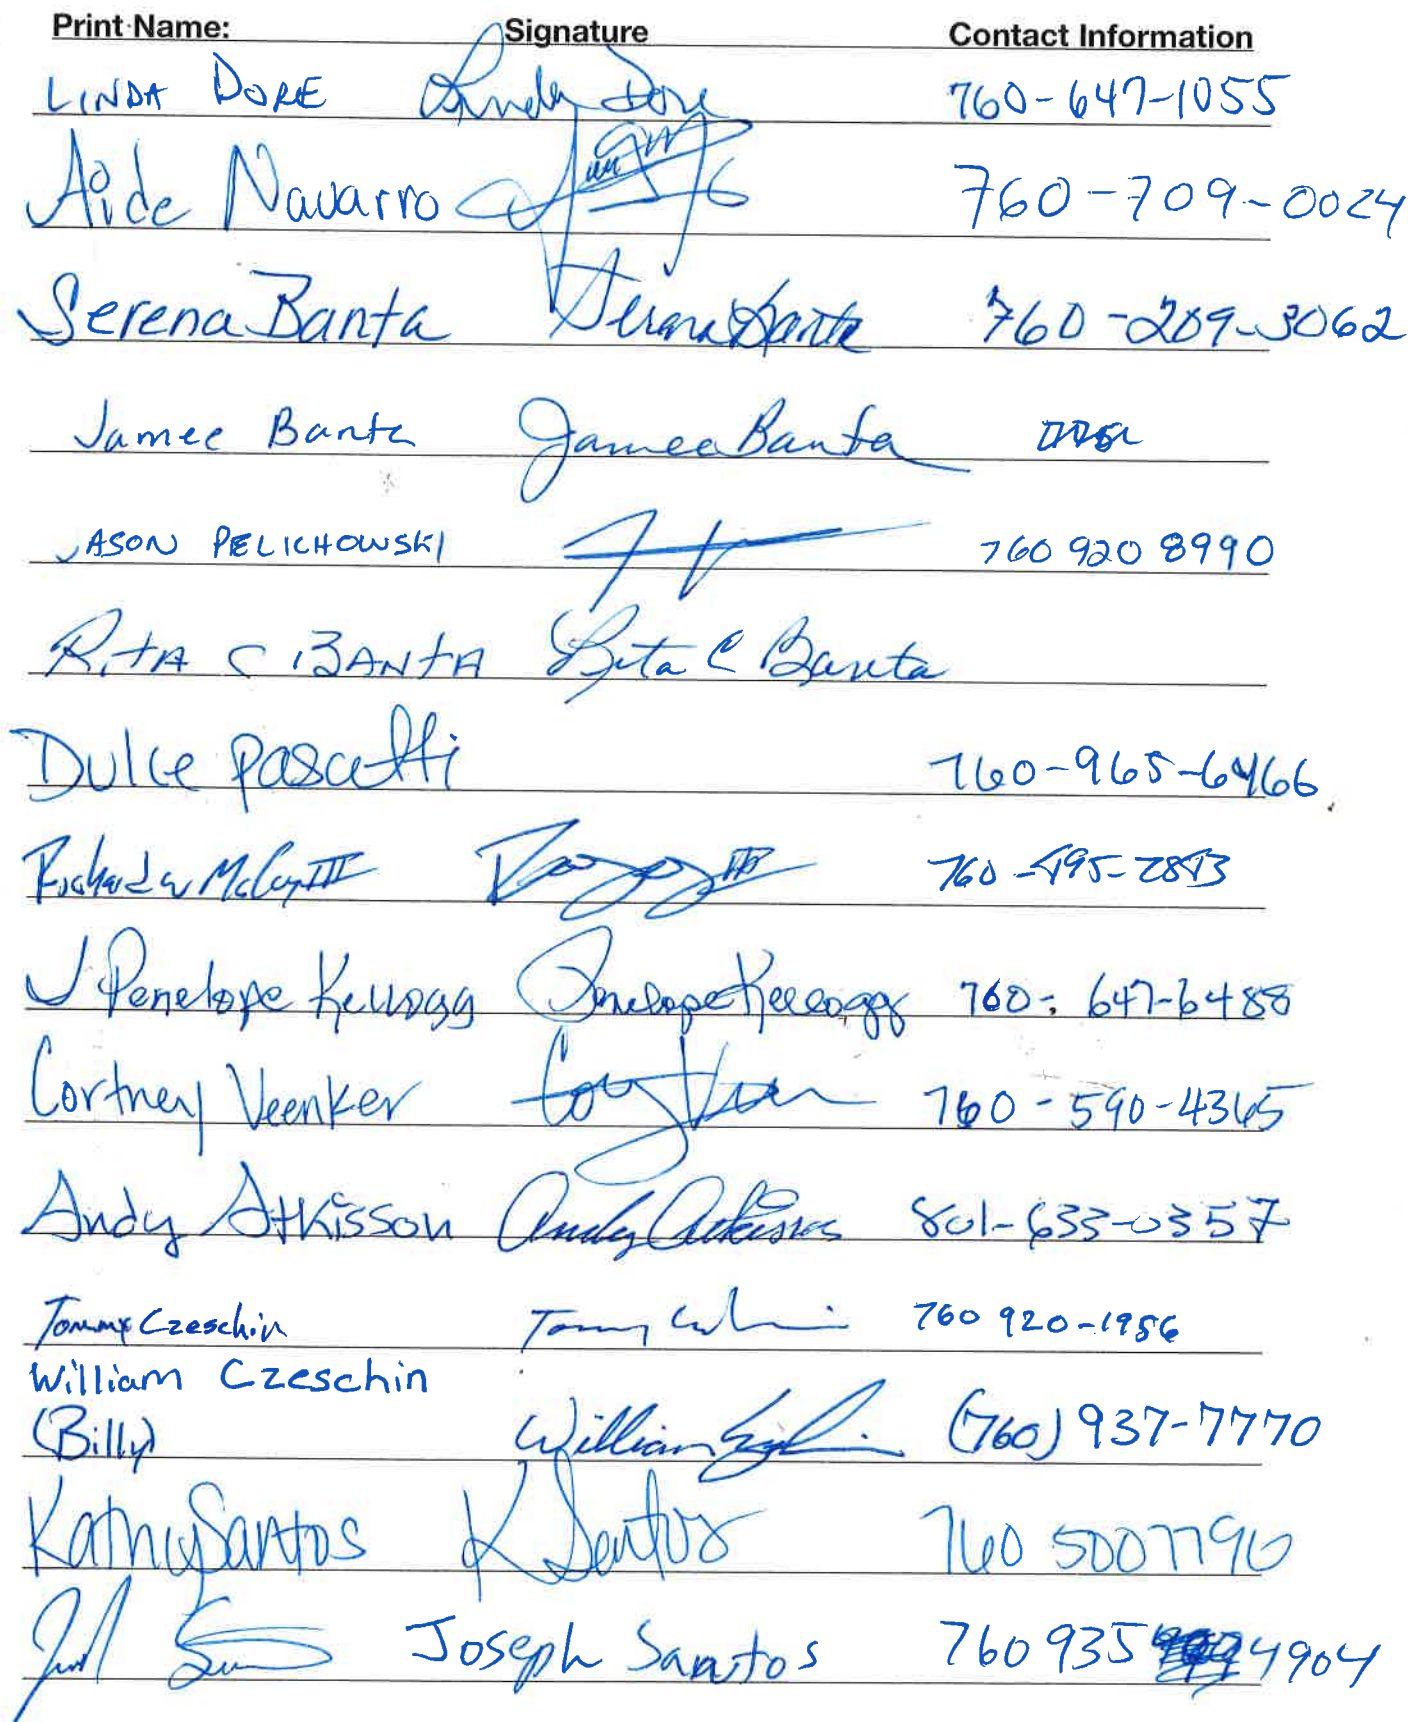 Print Name: Signature Contact Information
LINDA DORE Linda Dore 760-647-1055
Aide Navarro 760-709-0024
Serena Banta Serena Banta 760-209-3062
Jamee Banta Jamee Banta
JASON PELICHOWSKI 760 920 8990
RitA C BANtA Rita C Banta
Dulce pascetti 760-965-6466
Richard W McCoy III III 760-495-2893
J Penelope Kellogg Penelope Kellogg 760-647-6488
Cortney Veenker 760-590-4365
Andy Atkisson Andy Atkisson 801-633-0357
Tommy Czeschin Tommy 760 920-1956
William Czeschin
(Billy) William (760) 937-7770
Kathy Santos K Santos 760 5007796
Joseph Santos 760 935 4904